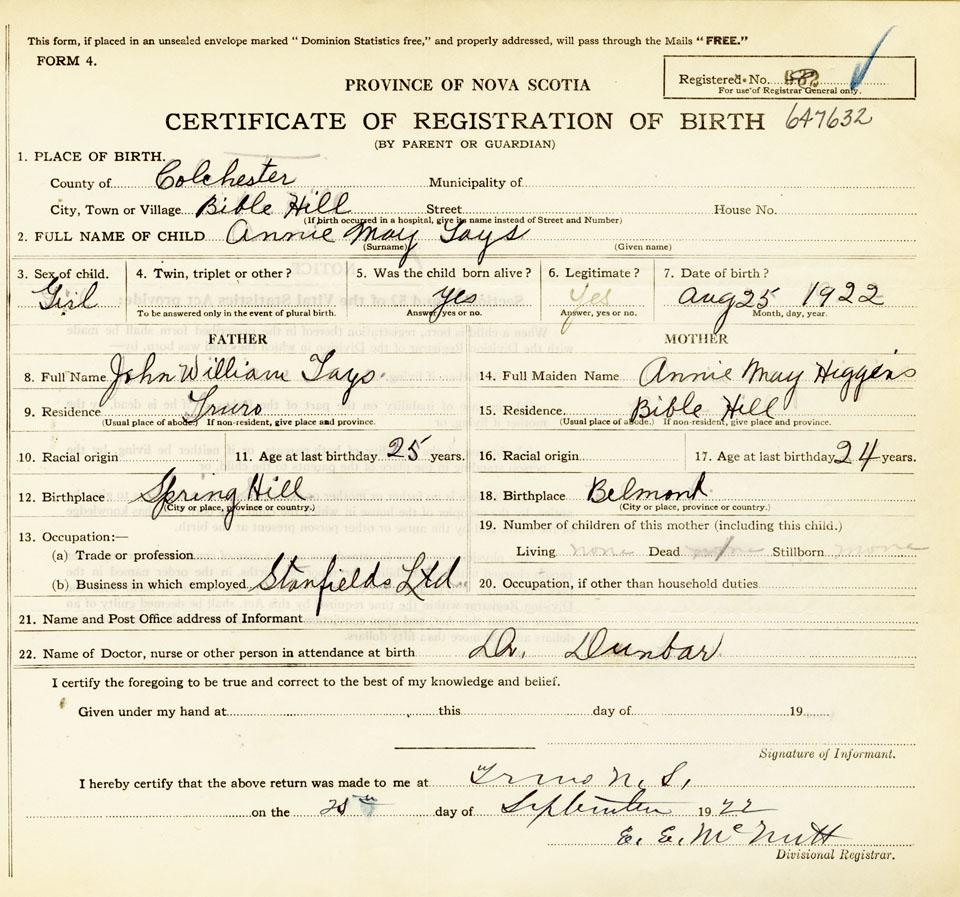 This form, if placed in an unsealed envelope marked "Dominion Statistics free," and properly addressed, will pass through the Mails "FREE."
FORM 4.
PROVINCE OF NOVA SCOTIA
Registered No.
For use of Registrar General only.
CERTIFICATE OF REGISTRATION OF BIRTH 647632
(BY PARENT OR GUARDIAN)
1. PLACE OF BIRTH.
County of Colchester Municipality of
City, Town or Village Bible Hill Street House No.
(If birth occurred in a hospital, give its name instead of Street and Number)
2. FULL NAME OF CHILD Annie May Tays
(Surname) (Given name)
3. Sex of child. 4. Twin, triplet or other? 5. Was the child born alive? 6. Legitimate? 7. Date of birth?
Girl yes Yes Aug 25 1922
To be answered only in the event of plural birth. Answer, yes or no. Answer, yes or no. Month, day, year.
FATHER MOTHER
8. Full Name John William Tays. 14. Full Maiden Name Annie May Higgins
9. Residence Truro 15. Residence. Bible Hill
(Usual place of abode.) If non-resident, give place and province. (Usual place of abode.) If non-resident, give place and province.
10. Racial origin 11. Age at last birthday 25 years. 16. Racial origin 17. Age at last birthday 24 years.
12. Birthplace Spring Hill 18. Birthplace Belmont
(City or place, province or country.) (City or place, province or country.)
19. Number of children of this mother (including this child.)
13. Occupation:—
(a) Trade or profession Living none Dead Stillborn none
(b) Business in which employed Stanfields Ltd. 20. Occupation, if other than household duties
21. Name and Post Office address of Informant
22. Name of Doctor, nurse or other person in attendance at birth Dr. Dunbar
I certify the foregoing to be true and correct to the best of my knowledge and belief.
Given under my hand at this day of 19
Signature of Informant.
I hereby certify that the above return was made to me at Truro N.S.,
on the 25th day of September 1922
E. E. McNutt
Divisional Registrar.